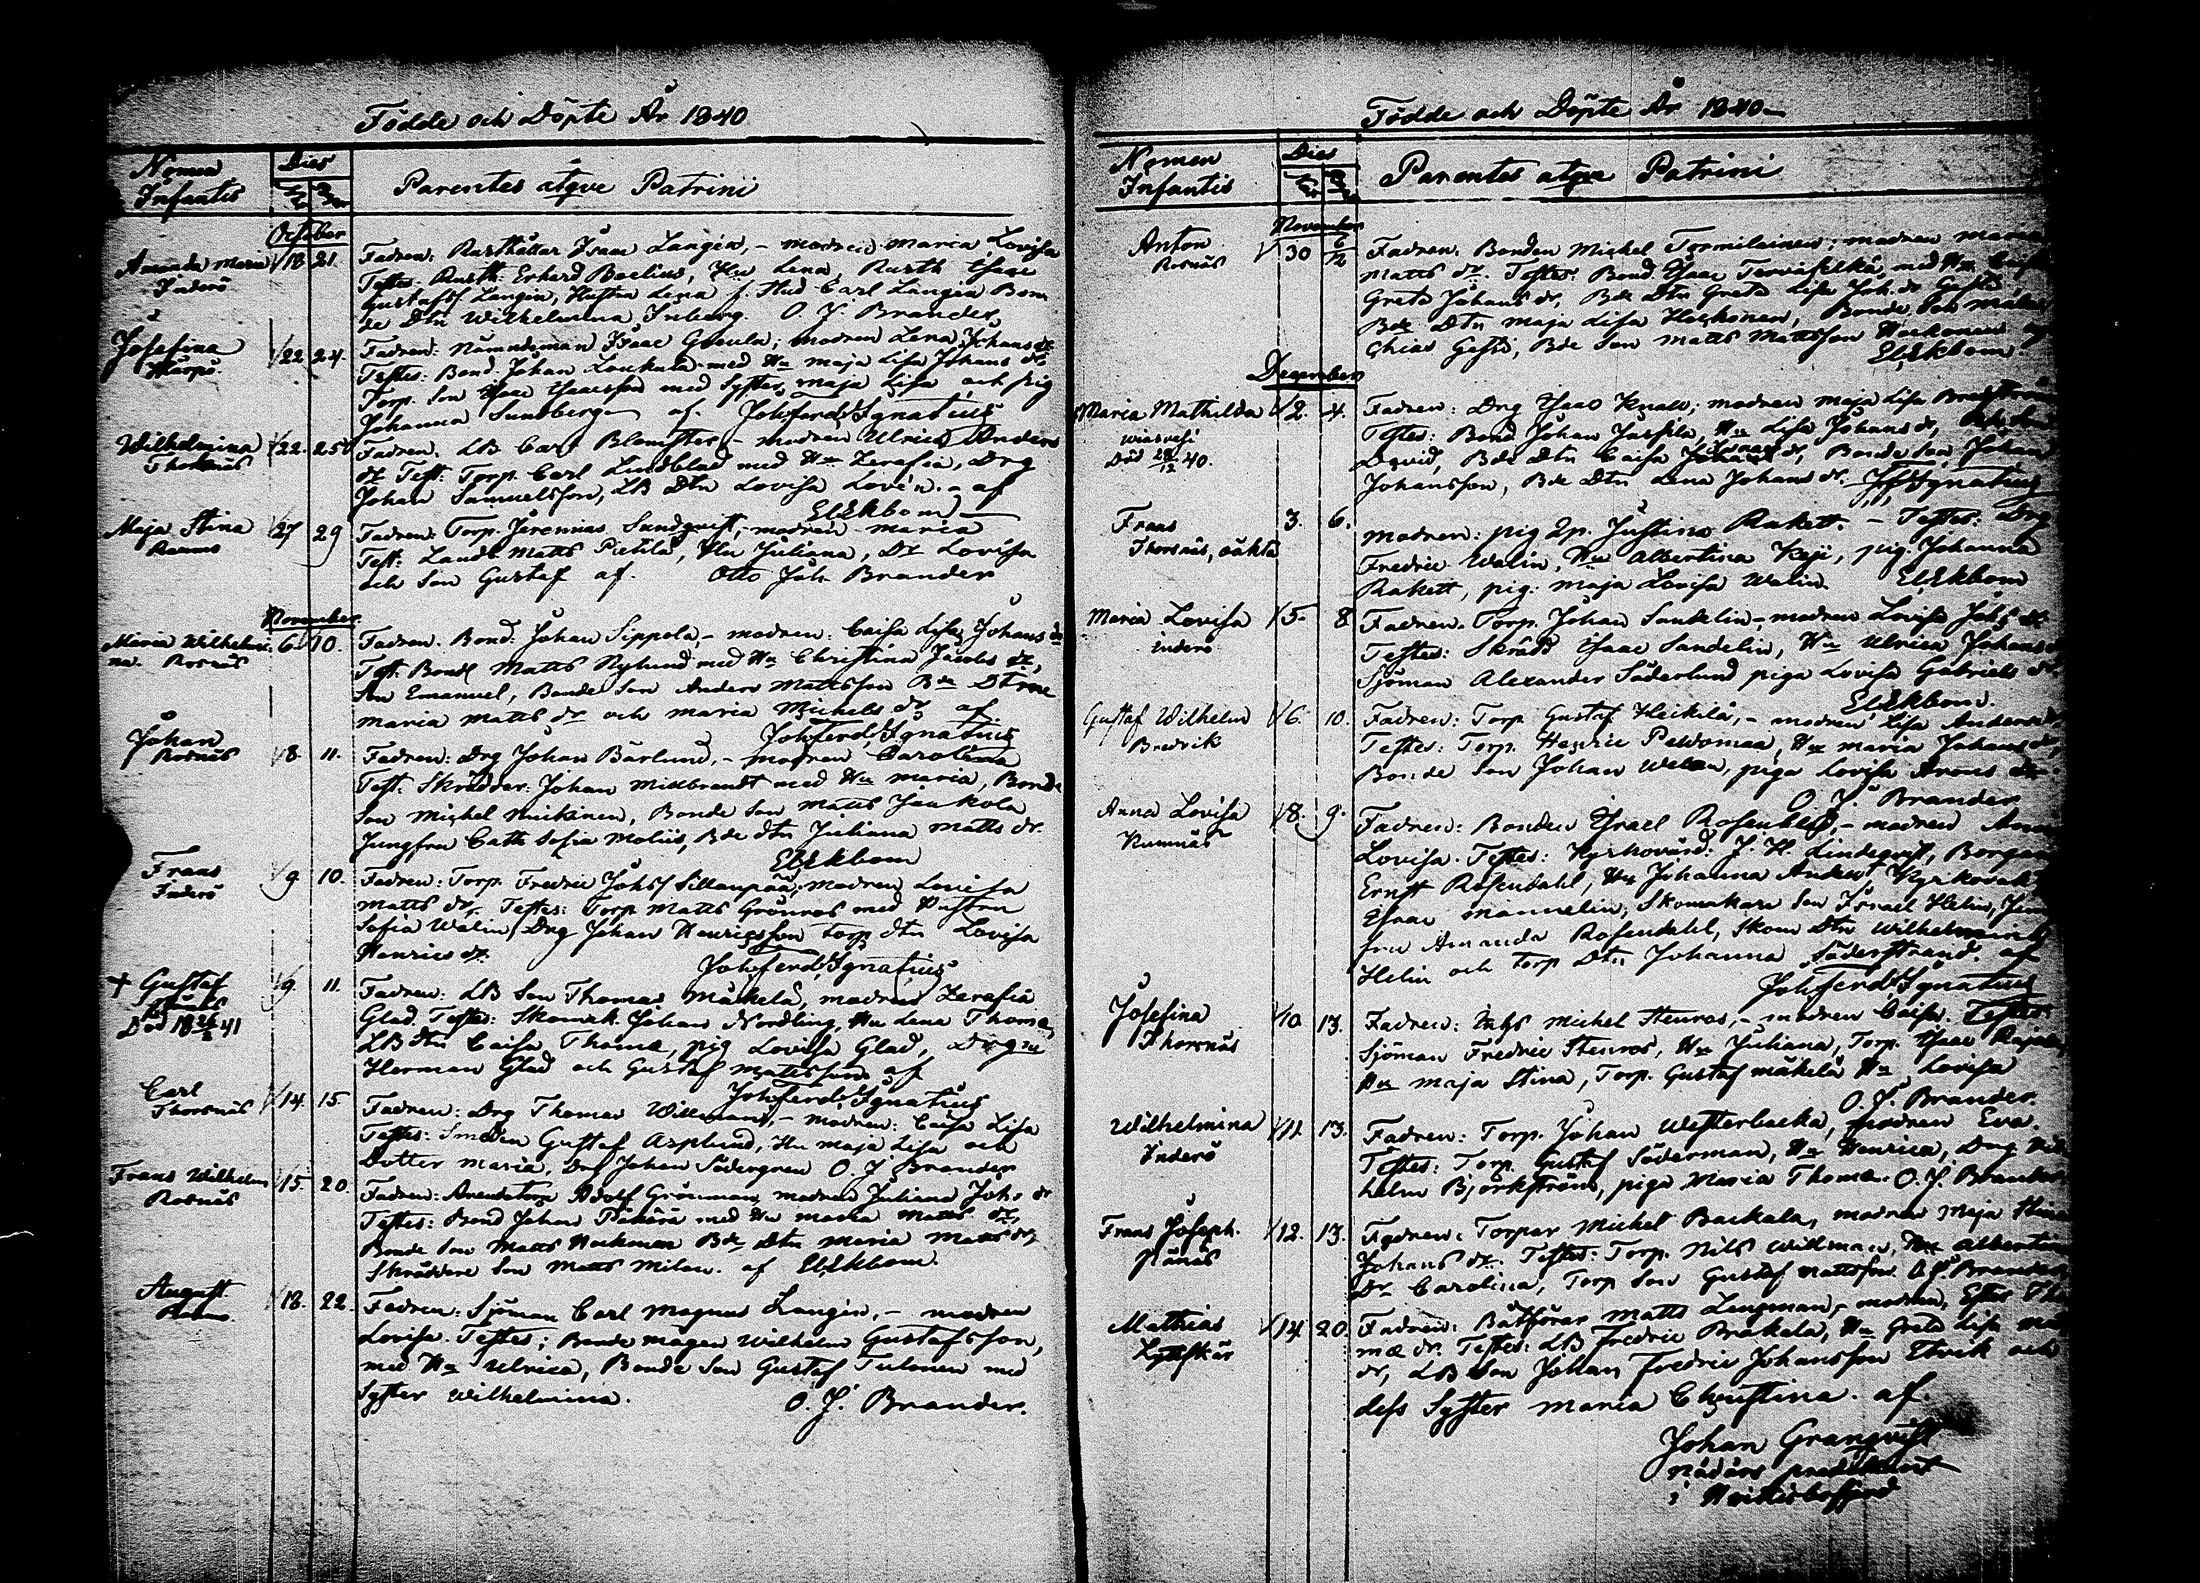 Födde och Döpte År 1840
Nomen Infantis
Dies
Parentes atqve Patrini
October
Amanda Maria
Inderö
18 21.
Fadren: Rusthållar Isaac Langen, - modren Maria Lovisa
Testes. Rusth. Erhard Baelius, Hu Lena, Rusth Isaac
Gustafs Langen, Hustru Lena f. Stud Carl Langen Bon
de Dtn Wilhelmina Inberg. O. J. Brander.
Josefina
22 24.
Fadren: Nämndeman Isaac ; modren Lena Johans dr
Testes: Bond. Johan Laukula med Hu Maja Lisa Johans dr
Torp. Son Isaac Isacsson med Syster Maja Lisa och pig
Johanna Sundberg af. Joh. Ferd. Ignatius
Wilhelmina
Thorsnäs
22. 25
Fadren. LB Carl Blomster - modren Ulrica Anders
dr Test: Torp. Carl Lindblad med Hu Zerafia, Drg
Johan Samuelsson, LB Dtn Lovisa Lovén. - af
El. Ekbom
Maja Stina
Raumo
27 29
Fadren: Torp. Jeremias Sundqvist, - modren Maria
Test: Landb Matts Pietilä, Hu Juliana, Dr Lovisa
och Son Gustaf af. Otto Joh. Brander
November
Maria Wilhelmi-
na. Rosnäs
6. 10.
Fadren. Bond: Johan Sippola, - modren: Caisa Lisa Johans dr
Test: Bond Matts Nylund med Hu Christina Jacobs dr,
Son Emanuel, Bonde Son Anders Mattsson Bde Dtrne
Maria Matts dr och Maria Michels dr af
Joh. Ferd. Ignatius
Johan
Rosnäs
8. 11.
Fadren: Drg Johan Bärlund, - modren Carolina
Test. Skrädder: Johan Mildbrandt med Hu Maria, Bonde
Son Michel Mickinen, Bonde Son Matts Jaakola
Jungfru Cath Sofia Molius, Bde dtn Juliana Matts dr.
El. Ekbom
Frans
Inderö
9. 10.
Fadren: Torp. Fredric Johss Sillanpää, modren Lovisa
Matts dr. Testes: Torp Matts Grönros med Hustru
Sofia Walin, Drg Johan Henricsson Torp dtn Lovisa
Henrics dr.
Joh. Ferd. Ignatius
+ Gustaf
Död 18 41
9. 11.
Fadren: LB Son Thomas Mäkelä, modren Zerafia
Glad. Testes: Skomak. Johan Nordling, Hu Lena Thomæ,
LB dtn Caisa Thomæ, pig Lovisa Glad, Drgne
Herman Glad och Gustaf Mattsson af
Joh. Ferd. Ignatius
Carl
Thorsnäs
14. 15
Fadren: Drg Thomas Willman, - modren: Caisa Lisa
Testes: Smeden Gustaf Asplund, Hu Maja Lisa och
Dotter Maria, Drg Johan Södergren O. J. Brander
Frans Wilhelm
Rosnäs
15 20.
Fadren: Arendetorp Adolf Grönman, modren Juliana Johs dr
Testes: Bond Johan med Hu Maria Matts dr,
Bonde Son Matts Hockonen Bde Dtn Maria Matts dr,
Skräddere Son Matts Milan. af El. Ekbom.
August
18. 22.
Fadren: Sjöman Carl Magnus Langen, - modren
Lovisa. Testes; Bonde mågen Wilhelm Gustafsson,
med Hu Ulrica, Bonde Son Gustaf Tulonen med
Syster Wilhelmina. O. J. Brander.
Födde och Döpte År 1840
Nomen Infantis
Dies
Parentes atqve Patrini
November
Anton
Rosnäs
30 6/12
Fadren: Bonden Michel Tormilainen; modren Maria
Matts dr. Testes: Bond. Isaac, med Hu
Greta Johans dr, Bde Dtn Greta Lisa Joh. dr
Bde Dtn Maja Lisa Hockonen, Bonde Son
, Bde Son Matts Mattsson Hockonen
El. Ekbom.
December
Maria Mathilda
Död 28/12 40.
2. 4.
Fadren: Drg Isaac Knall; modren Maja Lisa
Testes: Bond Johan, Hu Lisa Johans dr,
David, Bde Dtn Caisa dr, Bonde Son Johan
Johansson, Bde Dtn Lena Johans dr. J. F. Ignatius
Frans
Thorsnäs, oäkta
3. 6.
Modren: pig Justina Rakett. - Testes: Drg
Fredric Walin, Hu Albertina, pig. Johanna
Rakett, pig: Maja Lovisa Walin. El. Ekbom
Maria Lovisa
Inderö
5. 8
Fadren. Torp. Johan Sandelin - modren Lovisa Johs dr
Testes: Skrädd Isaac Sandelin, Hu Ulrica Johans
Sjöman Alexander Söderlund piga Lovisa Gabriels dr
El. Ekbom.
Gustaf Wilhelm
Bredvik
6. 10.
Fadren: Torp Gustaf Heickilä, - modren Lisa Anders
Testes: Torp. Henric Peldomaa, Hu Maria Johans dr,
Bonde Son Johan, piga Lovisa Arons dr.
O. J. Brander
Anna Lovisa
Rumnäs
8. 9.
Fadren: Bonden Israel Rosendahl, - modren Anna
Lovisa. Testes: Kyrkovärd. J. H. Lindeqvist, Borgar
Ernst Rosendahl, Hu Johanna, Kyrkovakt
Isaac Mannelin, Skomakare Son Israel Helin, Jung
fru Amanda Rosendahl, Skom Dtn Wilhelmina
Helin och Torp Dtn Johanna Söderstrand. af
Joh. Ferd. Ignatius
Josefina
Thorsnäs
10. 13.
Fadren: Michel Stenros, - modren Caisa. Testes
Sjöman Fredric Stenros, Hu Juliana, Torp. Isaac
Hu Maja Stina, Torp. Gustaf Mäkelä Hu Lovisa
O. J. Brander.
Wilhelmina
Inderö
11. 13.
Fadren: Torp. Johan Westerbacka, modren Eva.
Testes: Torp. Gustaf Söderman, Hu Henrica, Drg
helm Björkström, piga Maria Thomæ. O. J. Brander
Frans Joseph.
12. 13.
Fadren: Torpar Michel Backala, modren Maja Stina
Johans dr. Testes: Torp. Nils Willman, Hu Albertina
Dr Carolina, Torp Son Gustaf Mattsson. O. J. Brander
Mathias
14. 20.
Fadren: Båtförar Matts Lengman, - modren,
mæ dr. Testes: LB Fredric Brakala, Hu Greta Lisa
dr, LB Son Johan Fredric Johansson Etvik och
dess Syster Maria Christina. af.
Johan Granqvist
Nådårs predikant
i